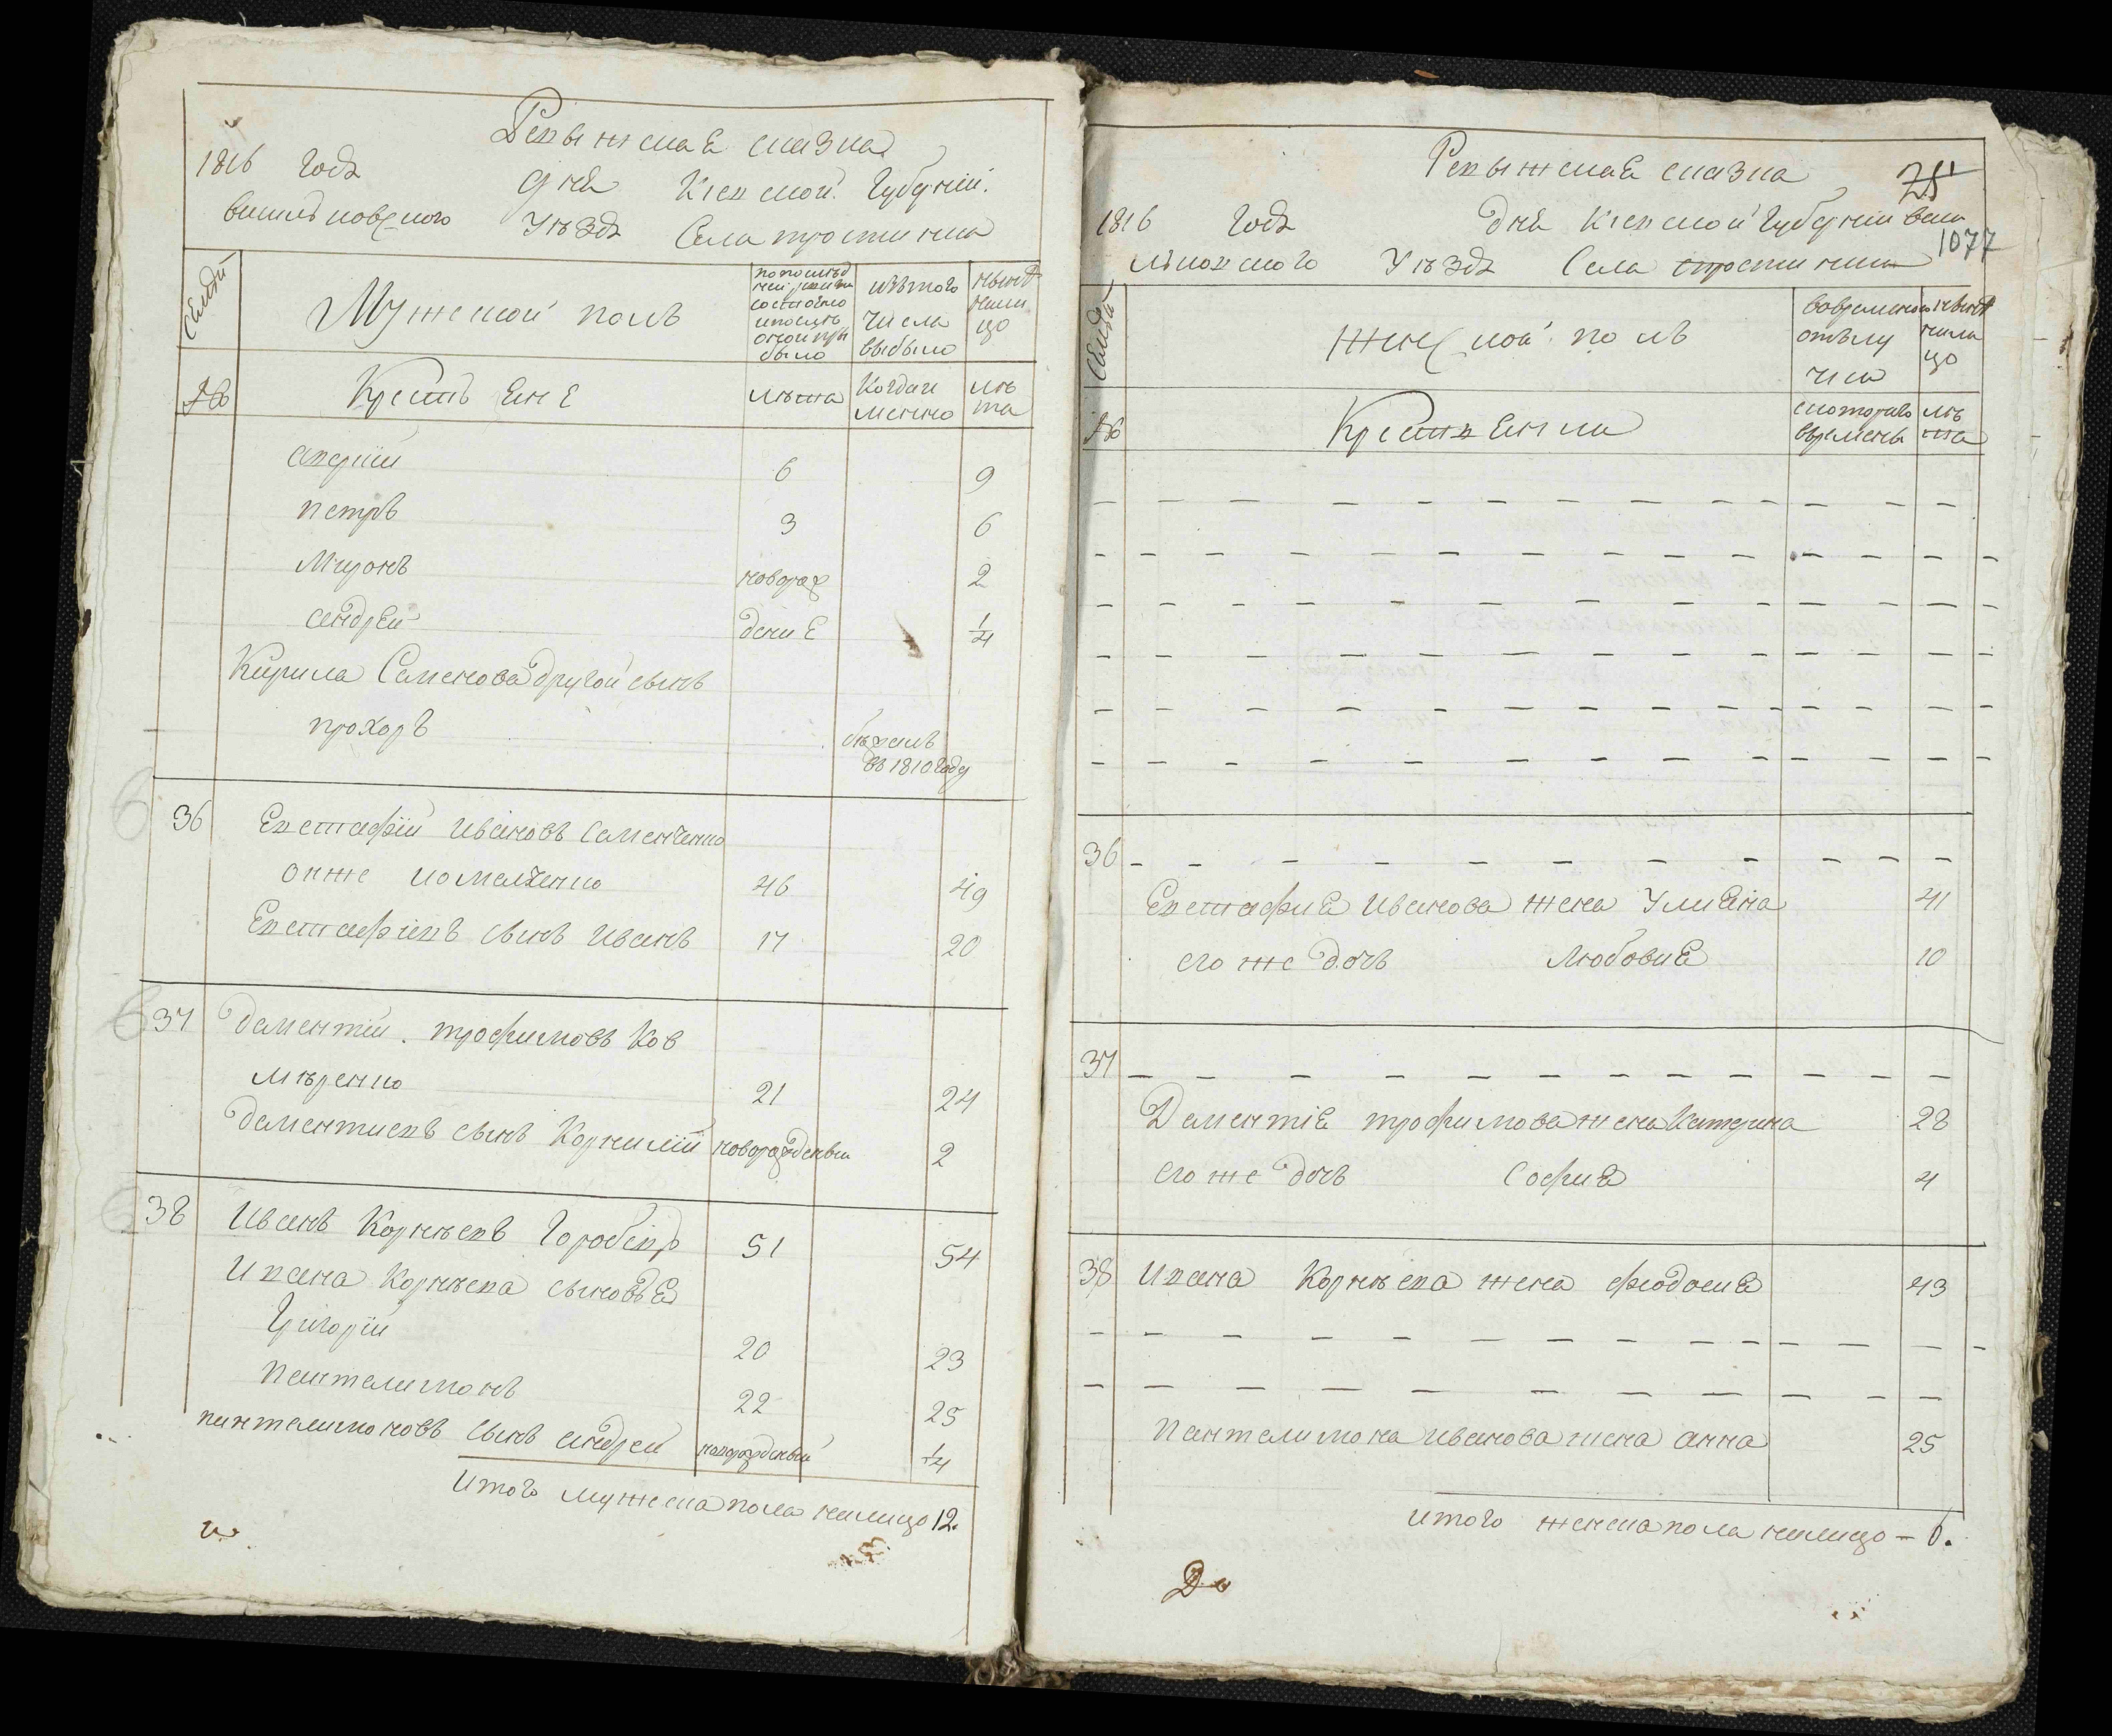 Ревыжская сказка
1816 Года дня Кіевской Губерніи.
васильковского Уѣзда Села тростинки
Семьи
Мужеской полъ
по послѣд
ней ревизіи
состояло
и послѣ
оной при
было
изъ того
числа
выбыло
нынѣ
нали
цо
№
Крестьяне
лѣта
Когда и
менно
лѣ
та
аверіи
6
9
петръ
3
6
Миронъ
новорож
2
андрей
дение
1/4
Кирила Семенова другой сынъ
прохоръ
бѣжалъ
въ 1810 году
36 Евстафій Ивановъ Семенченко
онже
46
49
Евстафіевъ сынъ Иванъ
17
20
37 дементій трофимовъ Ков
мѣренко
21
24
дементиевъ сынъ Корнилій новорожденый
2
38 Иванъ Корнѣевъ Горобецъ
51
54
Ивана Корнѣева сыновья
Григорій
20
23
Пантелимонъ
22
25
пантелимоновъ сынъ андрей новорожденый
1/4
Итого мужеска пола налицо 12.
Ревыжская сказка
25
1816 Года дня Кіевской Губерніи васи
1077
льковского Уѣзда Села тростинки
Семьи
Женской полъ
во временной
отълу
чки
нынѣ
нали
цо
№
Крестьянки
с которого
времени
лѣ
та
36
Евстафия Иванова жена Улияна
41
его же дочь Любовия
10
37
Дементія трофимова жена Катерина
28
его же дочь София
4
38 Ивана Корнѣева жена феодосия
43
Пантелимона Иванова жена анна
25
итого женска пола налицо – 6.